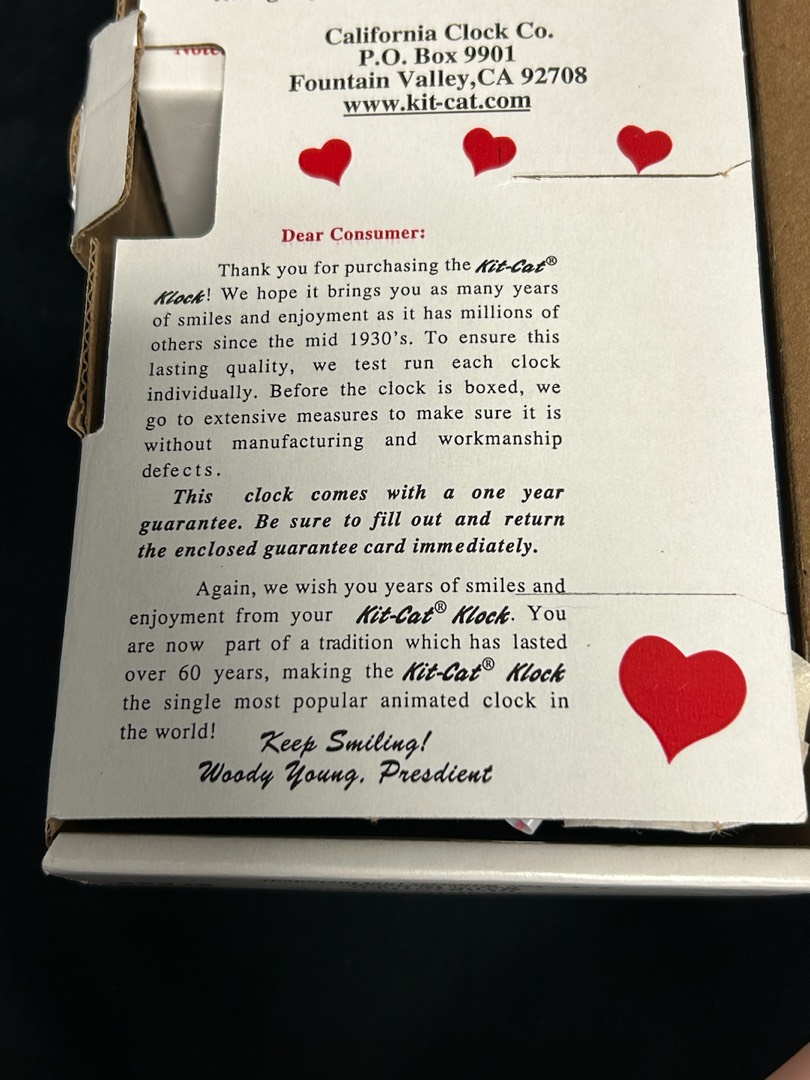 California Clock Co.
P.O. Box 9901
Fountain Valley,CA 92708
www.kit-cat.com
Note:
Dear Consumer:
Thank you for purchasing the Kit-Cat®
Klock! We hope it brings you as many years
of smiles and enjoyment as it has millions of
others since the mid 1930's. To ensure this
lasting quality, we test run each clock
individually. Before the clock is boxed, we
go to extensive measures to make sure it is
without manufacturing and workmanship
defects.
This clock comes with a one year
guarantee. Be sure to fill out and return
the enclosed guarantee card immediately.
Again, we wish you years of smiles and
enjoyment from your Kit-Cat® Klock. You
are now part of a tradition which has lasted
over 60 years, making the Kit-Cat® Klock
the single most popular animated clock in
the world!
Keep Smiling!
Woody Young, Presdient